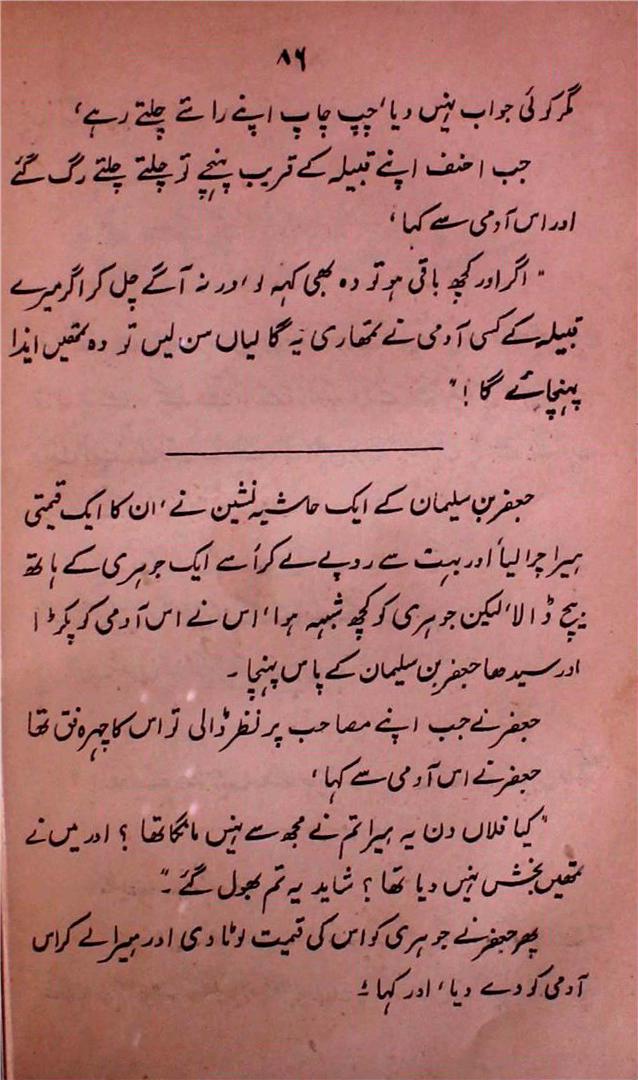 ۸۶
مگر کوئی جواب نہیں دیا، چپ چاپ اپنے راستے چلتے رہے،
جب احنف اپنے قبیلہ کے قریب پہنچے تو چلتے چلتے رگ گئے
اور اس آدمی سے کہا،
"اگر اور کچھ باقی ہو تو وہ بھی کہہ لو، ور نہ آگے چل کر اگر میرے
قبیلہ کے کسی آدمی نے تمھاری یہ گالیاں سن لیں تو وہ تمھیں ایذا
پہنچائے گا!"
جعفر بن سلیمان کے ایک حاشیہ نشین نے، ان کا ایک قیمتی
ہیرا چرا لیا، اور بہت سے روپے لے کر اُسے ایک جوہری کے ہاتھ
بیچ ڈالا، لیکن جوہری کو کچھ شبہہ ہوا، اس نے اس آدمی کو پکڑا
اور سیدھا جعفر بن سلیمان کے پاس پہنچا۔
جعفر نے جب اپنے مصاحب پر نظر ڈالی تو اس کا چہرہ فق تھا
جعفر نے اس آدمی سے کہا،
"کیا فلاں دن یہ ہیرا تم نے مجھ سے نہیں مانگا تھا؟ اور میں نے
تمھیں بخش نہیں دیا تھا؟ شاید یہ تم بھول گئے۔"
پھر جعفر نے جوہری کو اس کی قیمت لوٹا دی اور ہیرا لے کر اس
آدمی کو دے دیا، اور کہا:۔